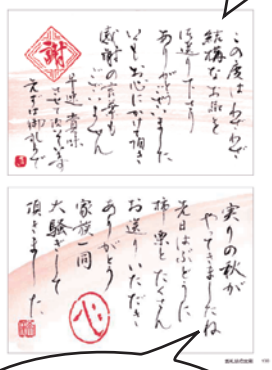 この度はわざわざ
結構なお品を
お送り下さり
ありがとうございました
いつもお心にかけて頂き
感謝の言葉も
ございません
早速賞味
させて頂きます
まずは御礼まで
謝
実りの秋が
やってきましたね
先日はぶどうに
柿栗とたくさん
お送りいただき
ありがとう
家族一同
大騒ぎして
頂きました
心